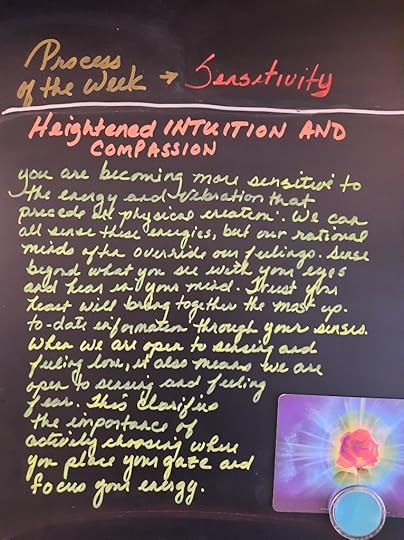 Process
of the Week → Sensitivity
Heightened INTUITION AND
COMPASSION
you are becoming more sensitive to
the energy and vibration that
precede all physical creation. We can
all sense these energies, but our rational
minds often override our feelings. Sense
beyond what you see with your eyes
and hear in your mind. Trust your
heart will bring together the most up-
to-date information through your senses.
When we are open to sensing and
feeling love, it also means we are
open to sensing and feeling
fear. This clarifies
the importance of
actively choosing where
you place your gaze and
focus your energy.